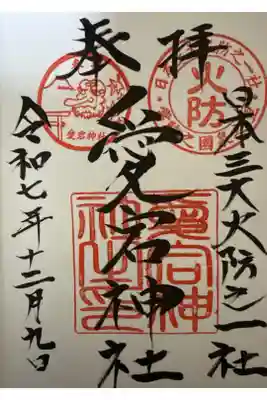 奉拝
日本三大火防之一社
愛宕神社
令和七年十二月九日
火防
愛宕神社